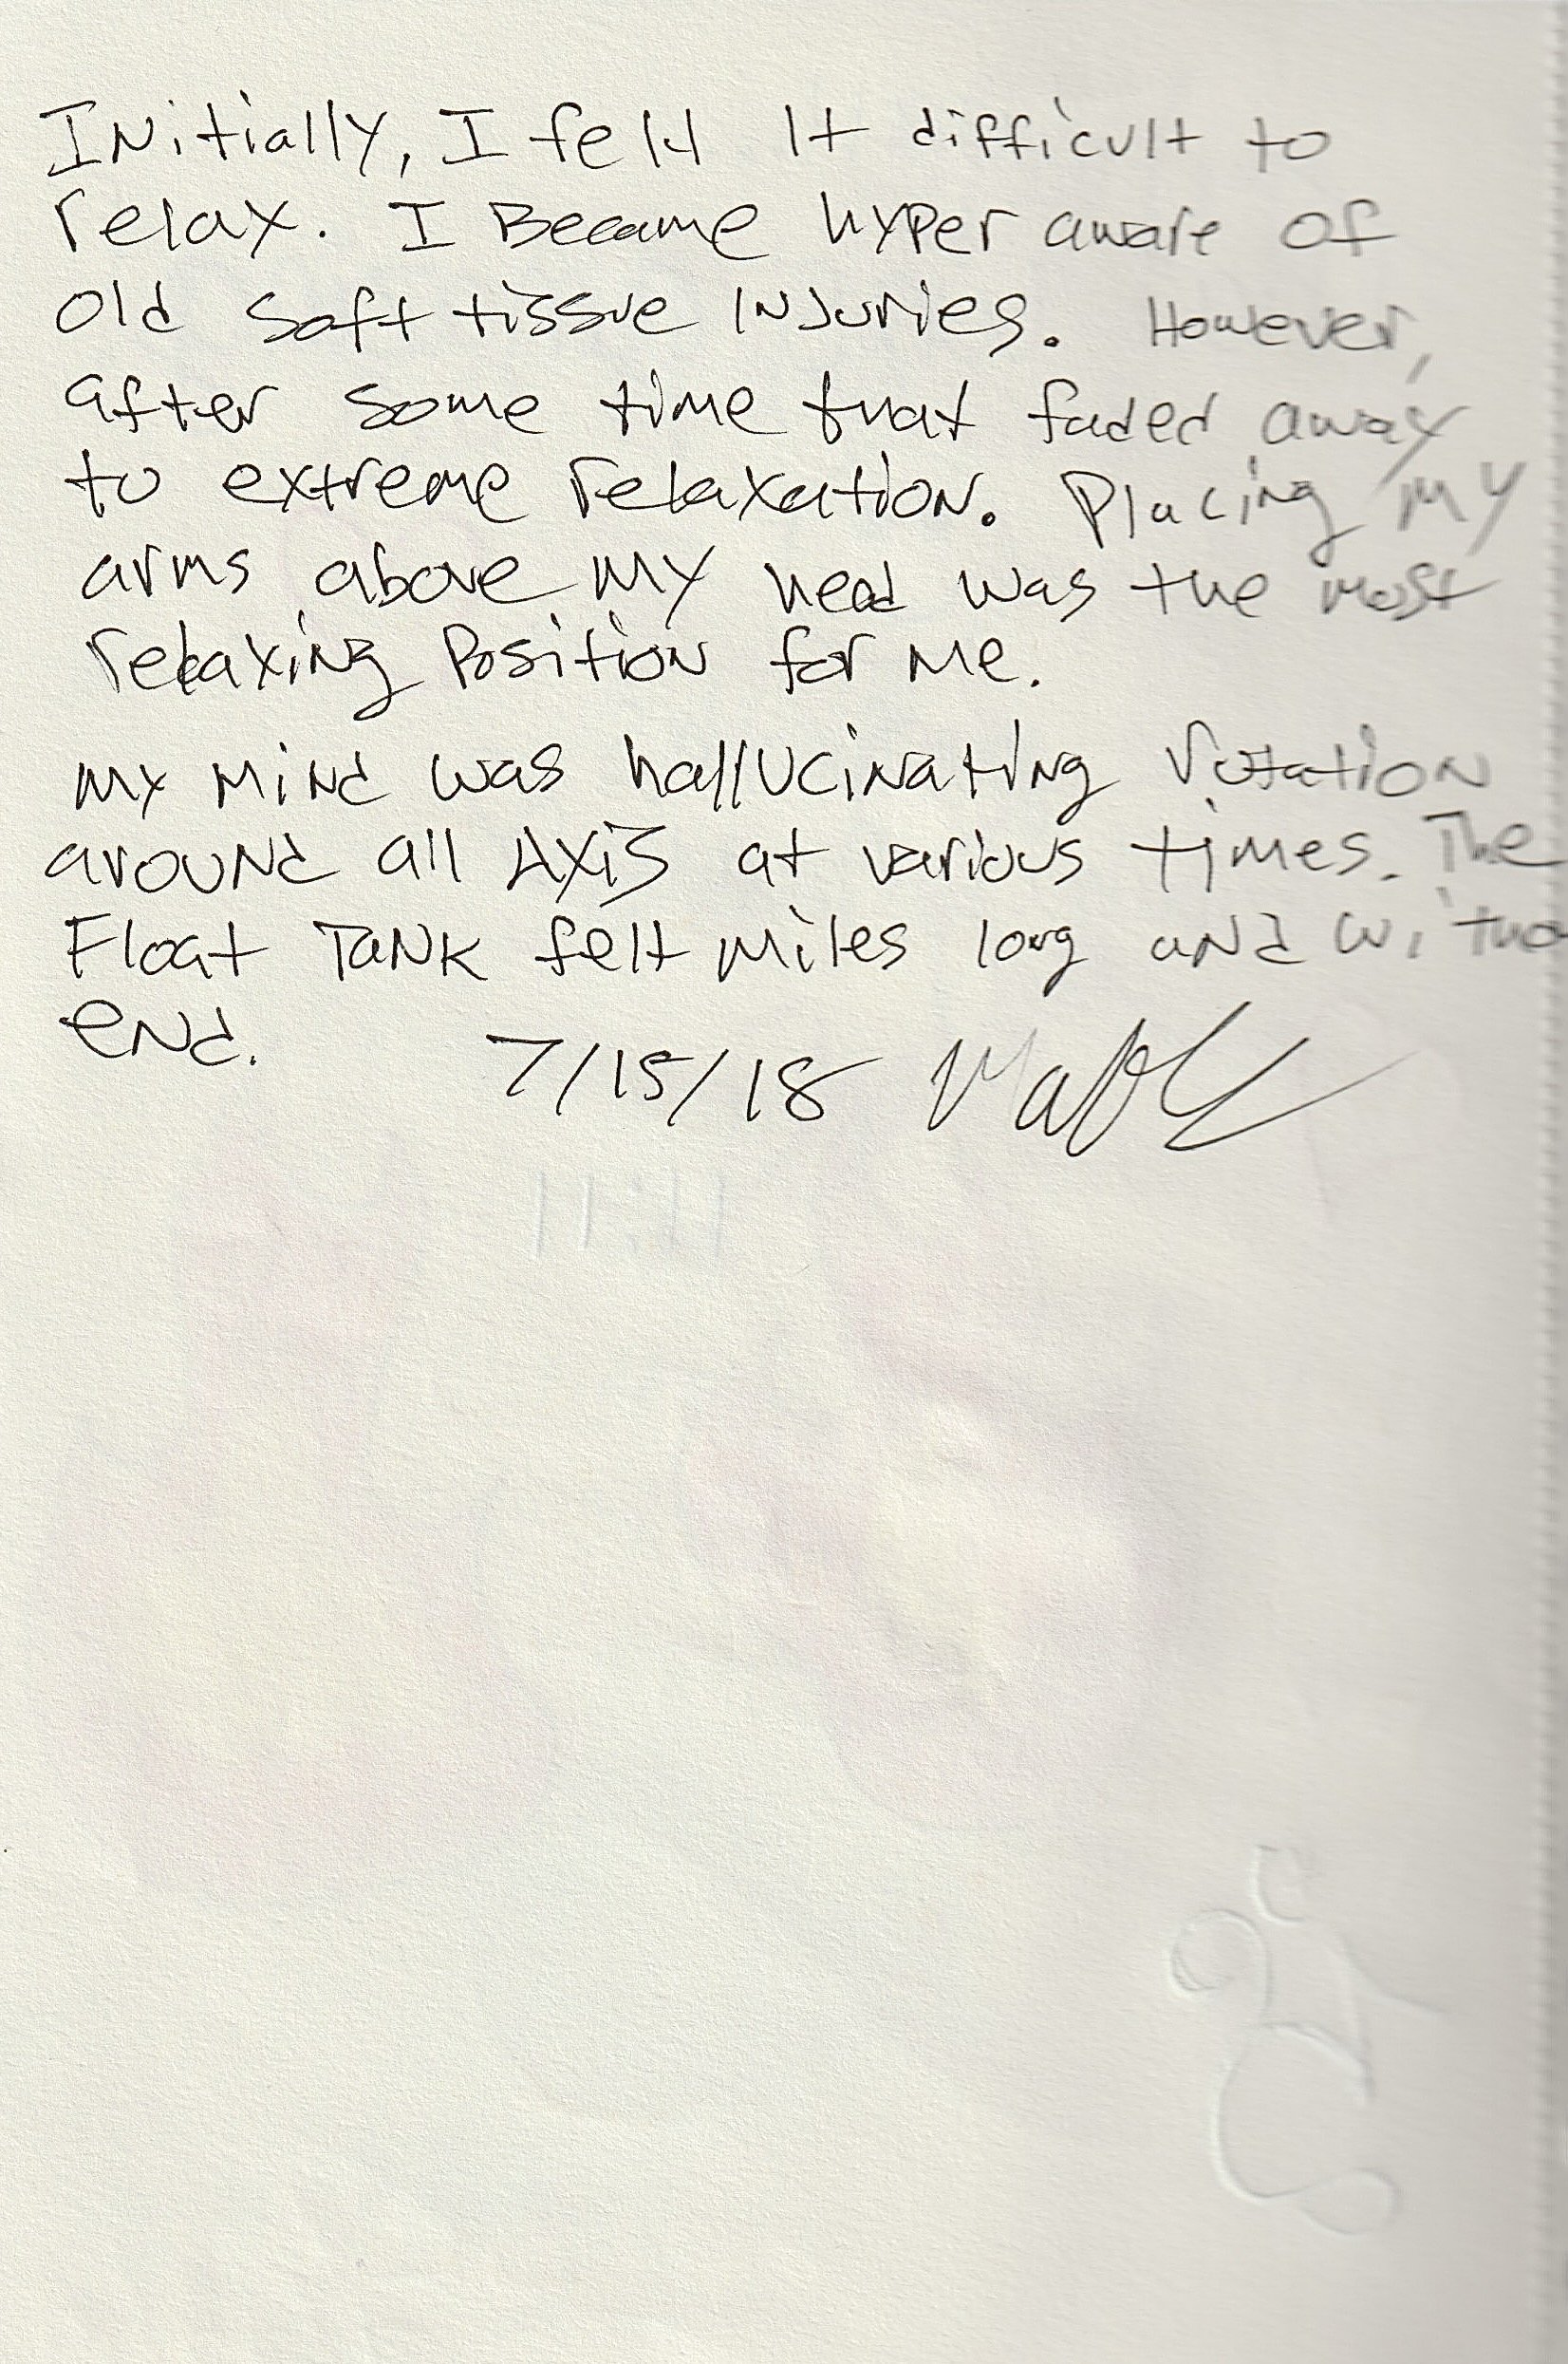 Initially, I felt It difficult to
relax. I Became hyper aware of
old soft tissue INJuries. However,
after some time that faded away
to extreme relaxation. Placing my
arms above my head was the most
relaxing Position for me.
my mind was hallucinating rotation
around all Axis at various times. The
Float Tank felt miles long and witho
end.
7/15/18
11:11